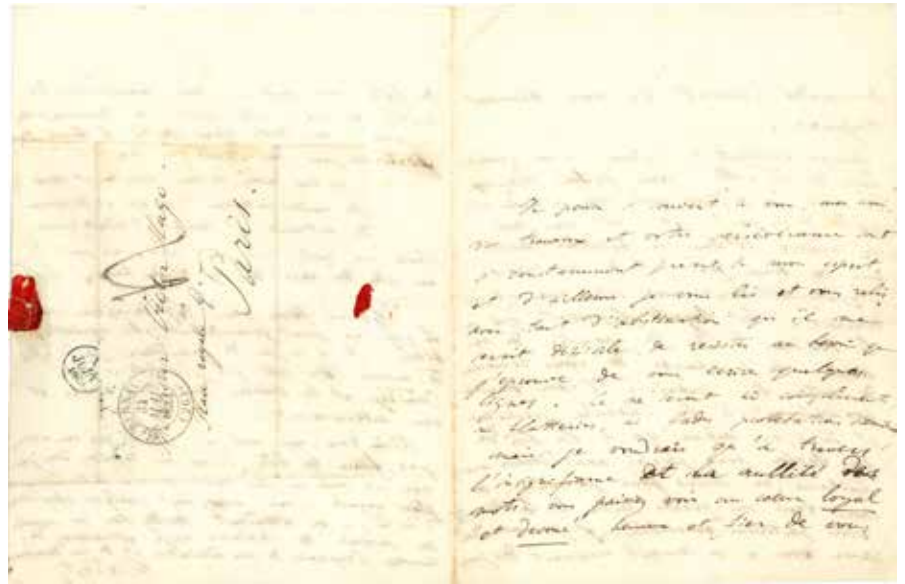 Monsieur Victor Hugo.
royale
Paris.
Je pense si souvent à vous, mon ami,
vos travaux et votre persévérance sont
si constamment présents à mon esprit,
et d'ailleurs je vous lis et vous relis
avec tant d'obstination qu'il me
serait difficile de résister au besoin que
j'éprouve de vous écrire quelques
lignes. Ce ne sont ni compliments
ni flatteries, ni fades protestations
mais je voudrais qu'à travers
l'insignifiance et la nullité des
mots vous puissiez voir un cœur loyal
et dévoué heureux et fier de vous